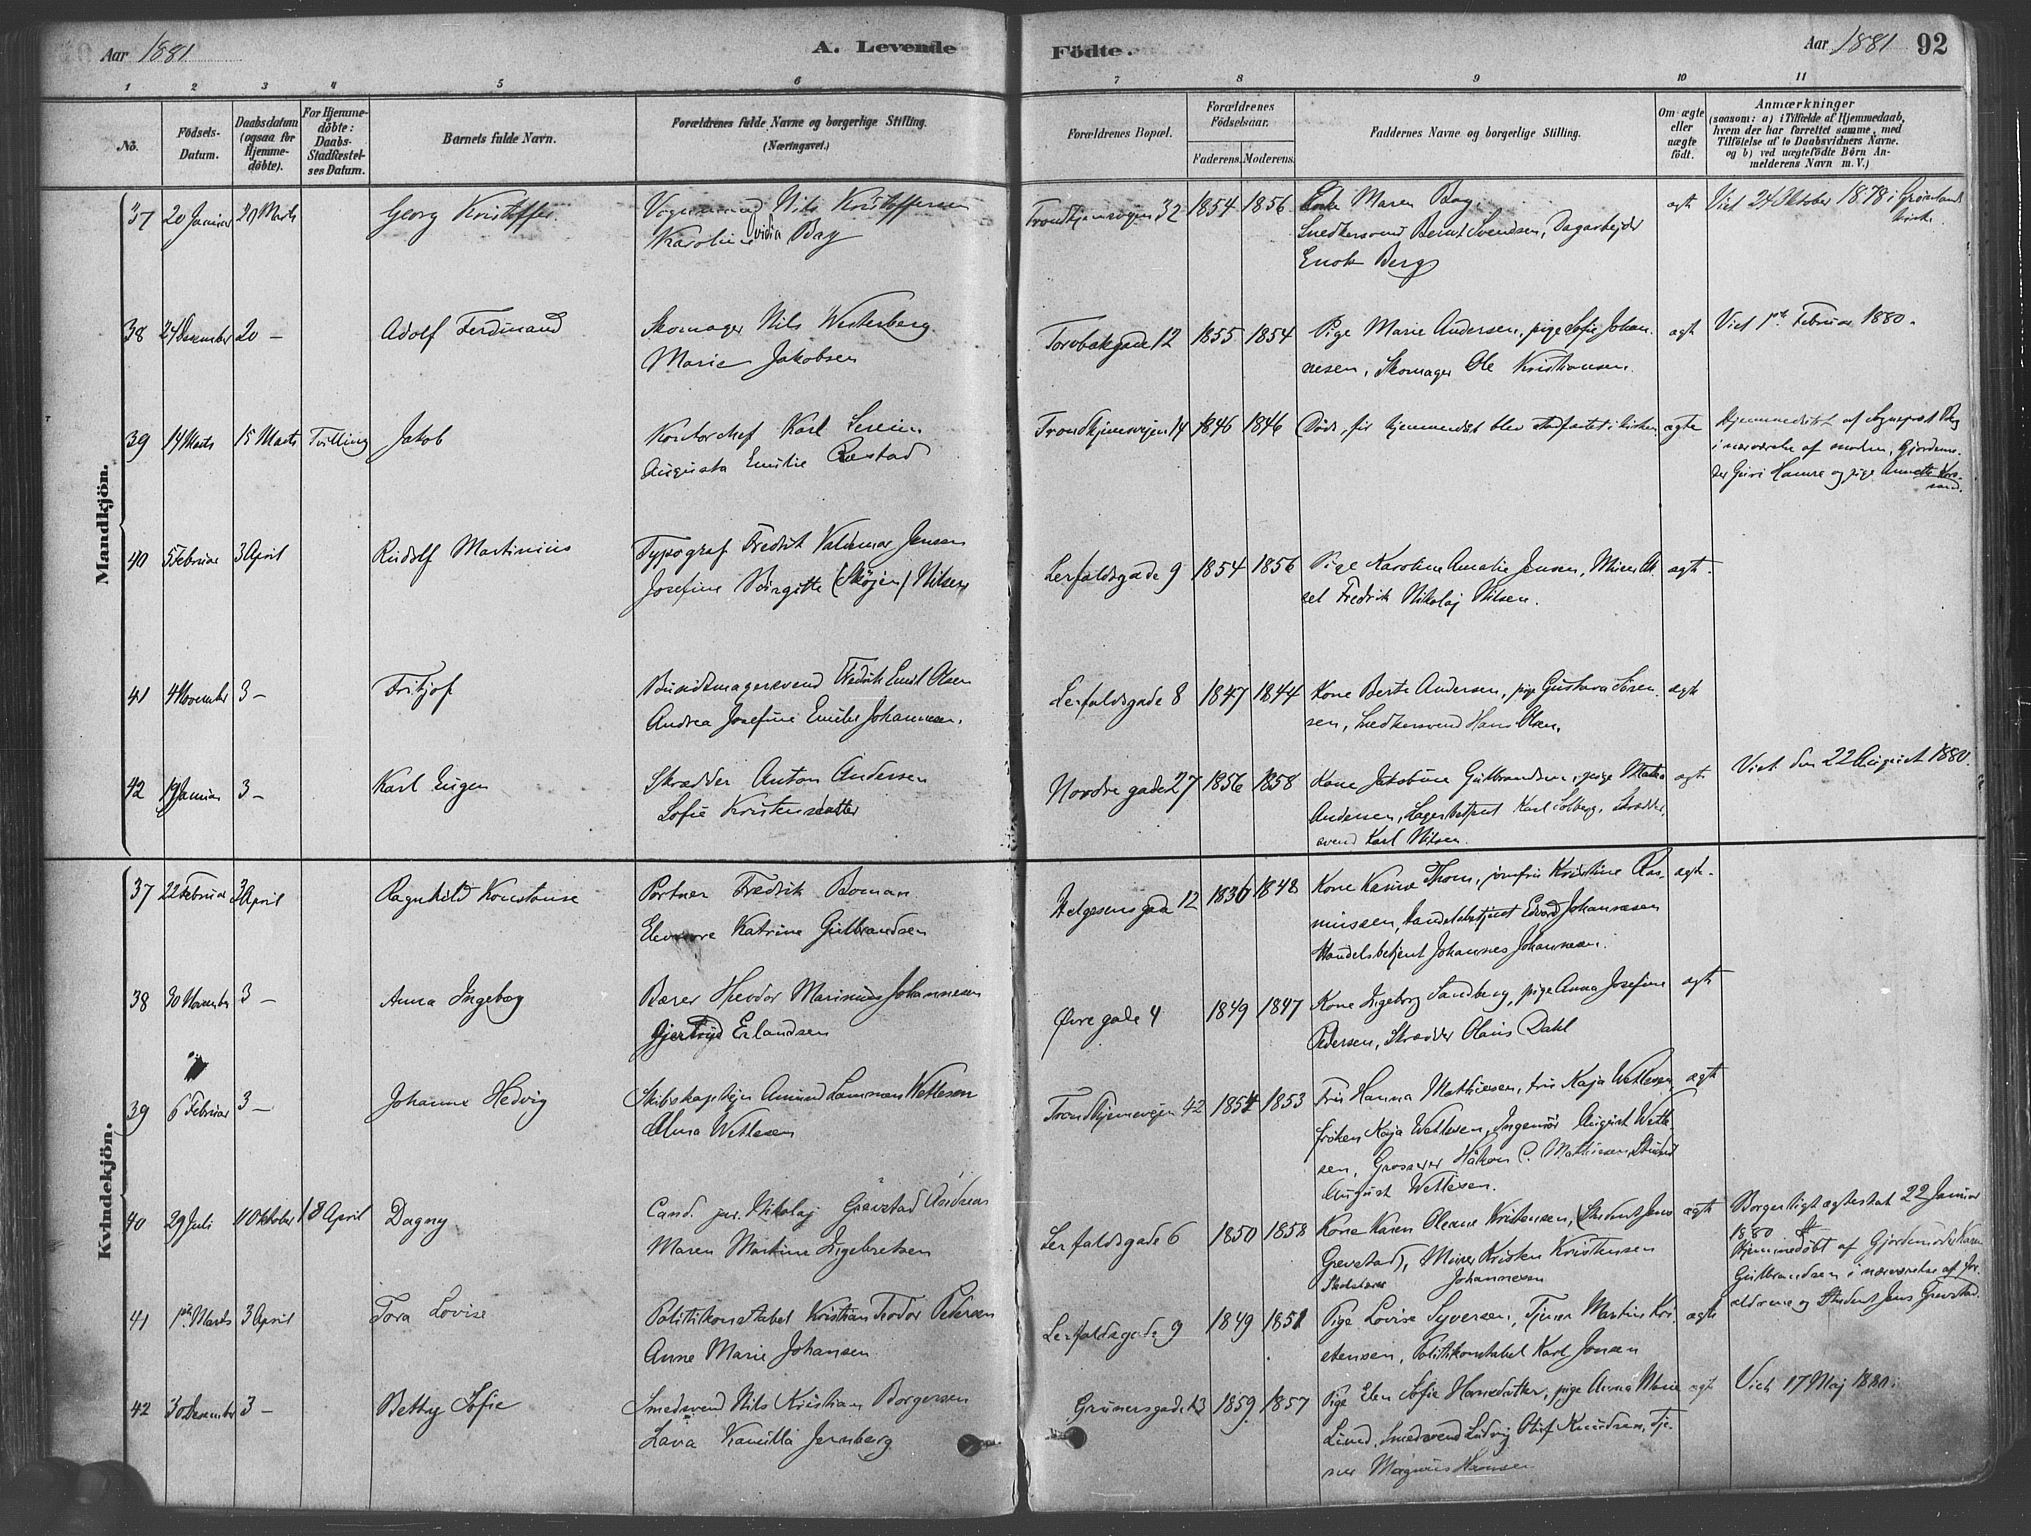 Aar 1881 A. Levende Födte. Aar 1881 92
1 2 3 4 5 6 7 8 9 10 11
No. Födsels-Datum. Daabsdatum (ogsaa for Hjemmedöbte). For Hjemmedöbte: Daabs-Stadfæstelses Datum. Barnets fulde Navn. Forældrenes fulde Navne og borgerlige Stilling. (Næringsvei.) Forældrenes Bopæl. Forældrenes Födselsaar. Faderens. Moderens. Faddernes Navne og borgerlige Stilling. Om ægte eller uægte födt. Anmærkninger (saasom: a) i Tilfælde af Hjemmedaab, hvem der har forrettet samme, med Tilföielse af to Daabsvidners Navne. og b) ved uægtefödte Börn Anmelderens Navn m. V.)
Mandkjön.
37 20 Januar 29 Marts Georg Kristoffer Vognmand Nils Kristoffersen Trondhjemsveien 32 1854 1856 Maren Berg ægte Viet 24 Oktober 1878 i Grønlands
Karoline Bay Snedkersvend Bernt Svendsen, Dagarbejder Kirke.
Enok Berg
38 24 Desember 20 — Adolf Ferdinand Skomager Nils Westerberg Torvbakgade 12 1855 1854 Pige Marie Andersen, pige Sofie Johan- ægt Viet 1ste Februar 1880.
Marie Jakobsen nesen, Skomager Ole Kristiansen.
39 14 Marts 15 Marts Tvilling Jakob Kontorchef Karl Trondhjemsveien 14 1846 1846 Døde, før hjemmedåb blev stadfæstet i kirken ægte Hjemmedøbt af Sogneprest
Augusta Emilie Røstad i nærværelse af moderen, Gjordemo-
der Guri Hamre og pige Annette
40 5 Februar 3 April Rudolf Martinius Typograf Fredrik Valdemar Jensen Lerfaldsgade 9 1854 1856 Pige Karoline Amalie Jensen, Murer Ak- ægte
Josefine Birgitte (Skøjen) Nilsen sel Fredrik Nikolaj Nilsen.
41 4 November 3 — Fritjof Buntmagersvend Fredrik Emil Olsen Lerfaldsgade 8 1847 1844 Kone Berte Andersen, pige Gustava Soren- ægte
Andrea Josefine Emilie Johannesen. sen, Snedkersvend Hans Olsen.
42 19 Januar 3 — Karl Eugen Skrædder Anton Andersen Nordre gade 27 1856 1858 Kone Jakobine Gulbrandsen, pige ægte Viet den 22 August 1880.
Sofie Kristensdatter Andersen, Lagerbetjent Karl Solberg, Skrædder-
svend Karl Nilsen.
Kvindekjön.
37 22 Februar 3 April Ragnhild Konstanse Portner Fredrik Boman Helgesensgade 12 1836 1848 Kone Karine Thom, jomfru Kristine Ras- ægte
Eleonore Katrine Gulbrandsen mussen, handelsbetjent Edvard Johannesen
Handelsbetjent Johannes Johannesen.
38 30 November 3 — Anna Ingeborg Bærer Theodor Marinius Johannesen Øvre gade 4 1849 1847 Kone Ingeborg Sandberg, pige Anna Josefine ægte
Gjertrud Erlandsen Pedersen, Skrædder Olaus Dahl
39 6 Februar 3 — Johanne Hedvig Skibskaptejn Amund Wettesen Trondhjemsvejen 42 1854 1853 Fru Hanna Mathiesen, fru Kaja Wettesen, ægte
Alma Wettesen frøken Kaja Wettesen, Ingeniør August Wette-
sen, Grosserer Håkon C. Mathiesen, Student
August Wettesen.
40 29 Juli 11 Oktober 18 April Dagny Cand. jur. Nikolaj Grevstad Lerfaldsgade 6 1850 1858 Kone Karen Oleane Kristensen, (Student Jens ægte Borgerligt ægteviet 22 Januar
Maren Martine Ingebretsen Grevstad), Murer Kristen Kristensen 1880
Johannesen Hjemmedøbt af Gjordemoder Karen
Gulbrandsen i nærværelse af for-
ældrene og Student Jens Grevstad.
41 1ste Marts 3 April Tora Lovise Politikonstabel Kristian Teodor Pedersen Lerfaldsgade 9 1849 1851 Pige Lovise Syversen, Tjener Martin Kri- ægte
Anne Marie Johansen stensen, Politikonstabel Karl Jonsen
42 30 Desember 3 — Betty Sofie Smedsvend Nils Kristian Borgersen Grünersgade 13 1859 1857 Pige Elen Sofie Hansdatter, pige Anna Marie ægte Viet 17 Maj 1880.
Lava Kamilla Jernberg Lund, Smedsvend Ludvig Olaf Knudsen, Tje-
ner Magnus Hansen